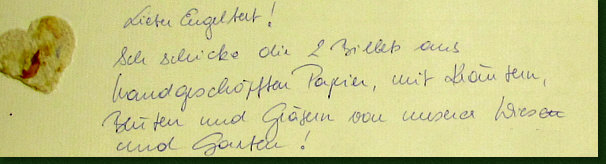 Lieber Engelbert!
Ich schicke dir 2 Billets aus
handgeschöpften Papier, mit Kräutern,
Blüten und Gräsern von unserer Wiese
und Garten!